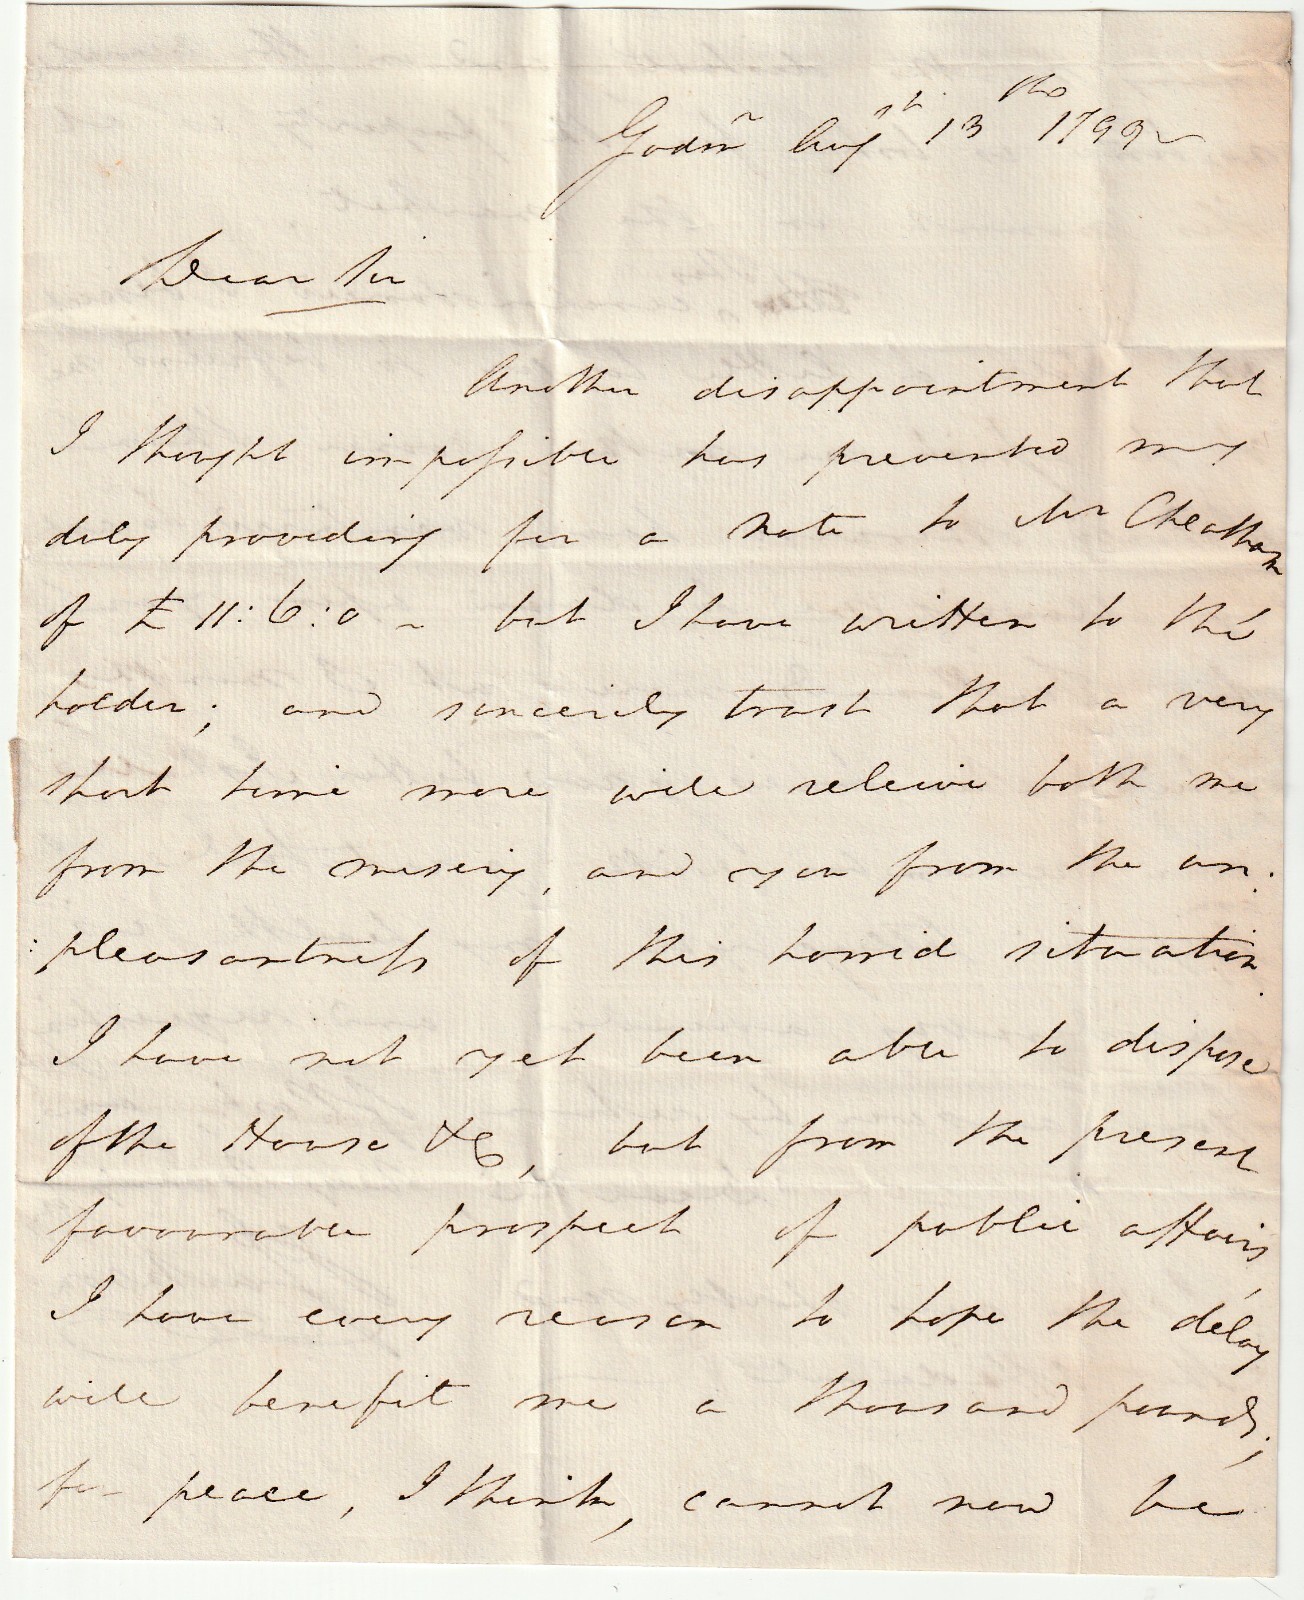 Godmn Augst 13th 1799
Dear Sir
Another disappointment that
I thought impossible has prevented my
duly providing for a Note to Mr Cheatham
of £ 11:6:0 - but I have written to the
holder; and sincerely trust that a very
short time more will releive both me
from the misery, and you from the un:
:pleasantness of this horrid situation.
I have not yet been able to dispose
of the House &c, but from the present
favourable prospect of public affairs,
I have every reason to hope the delay
will benefit me a thousand pounds;
for peace, I think, cannot now be